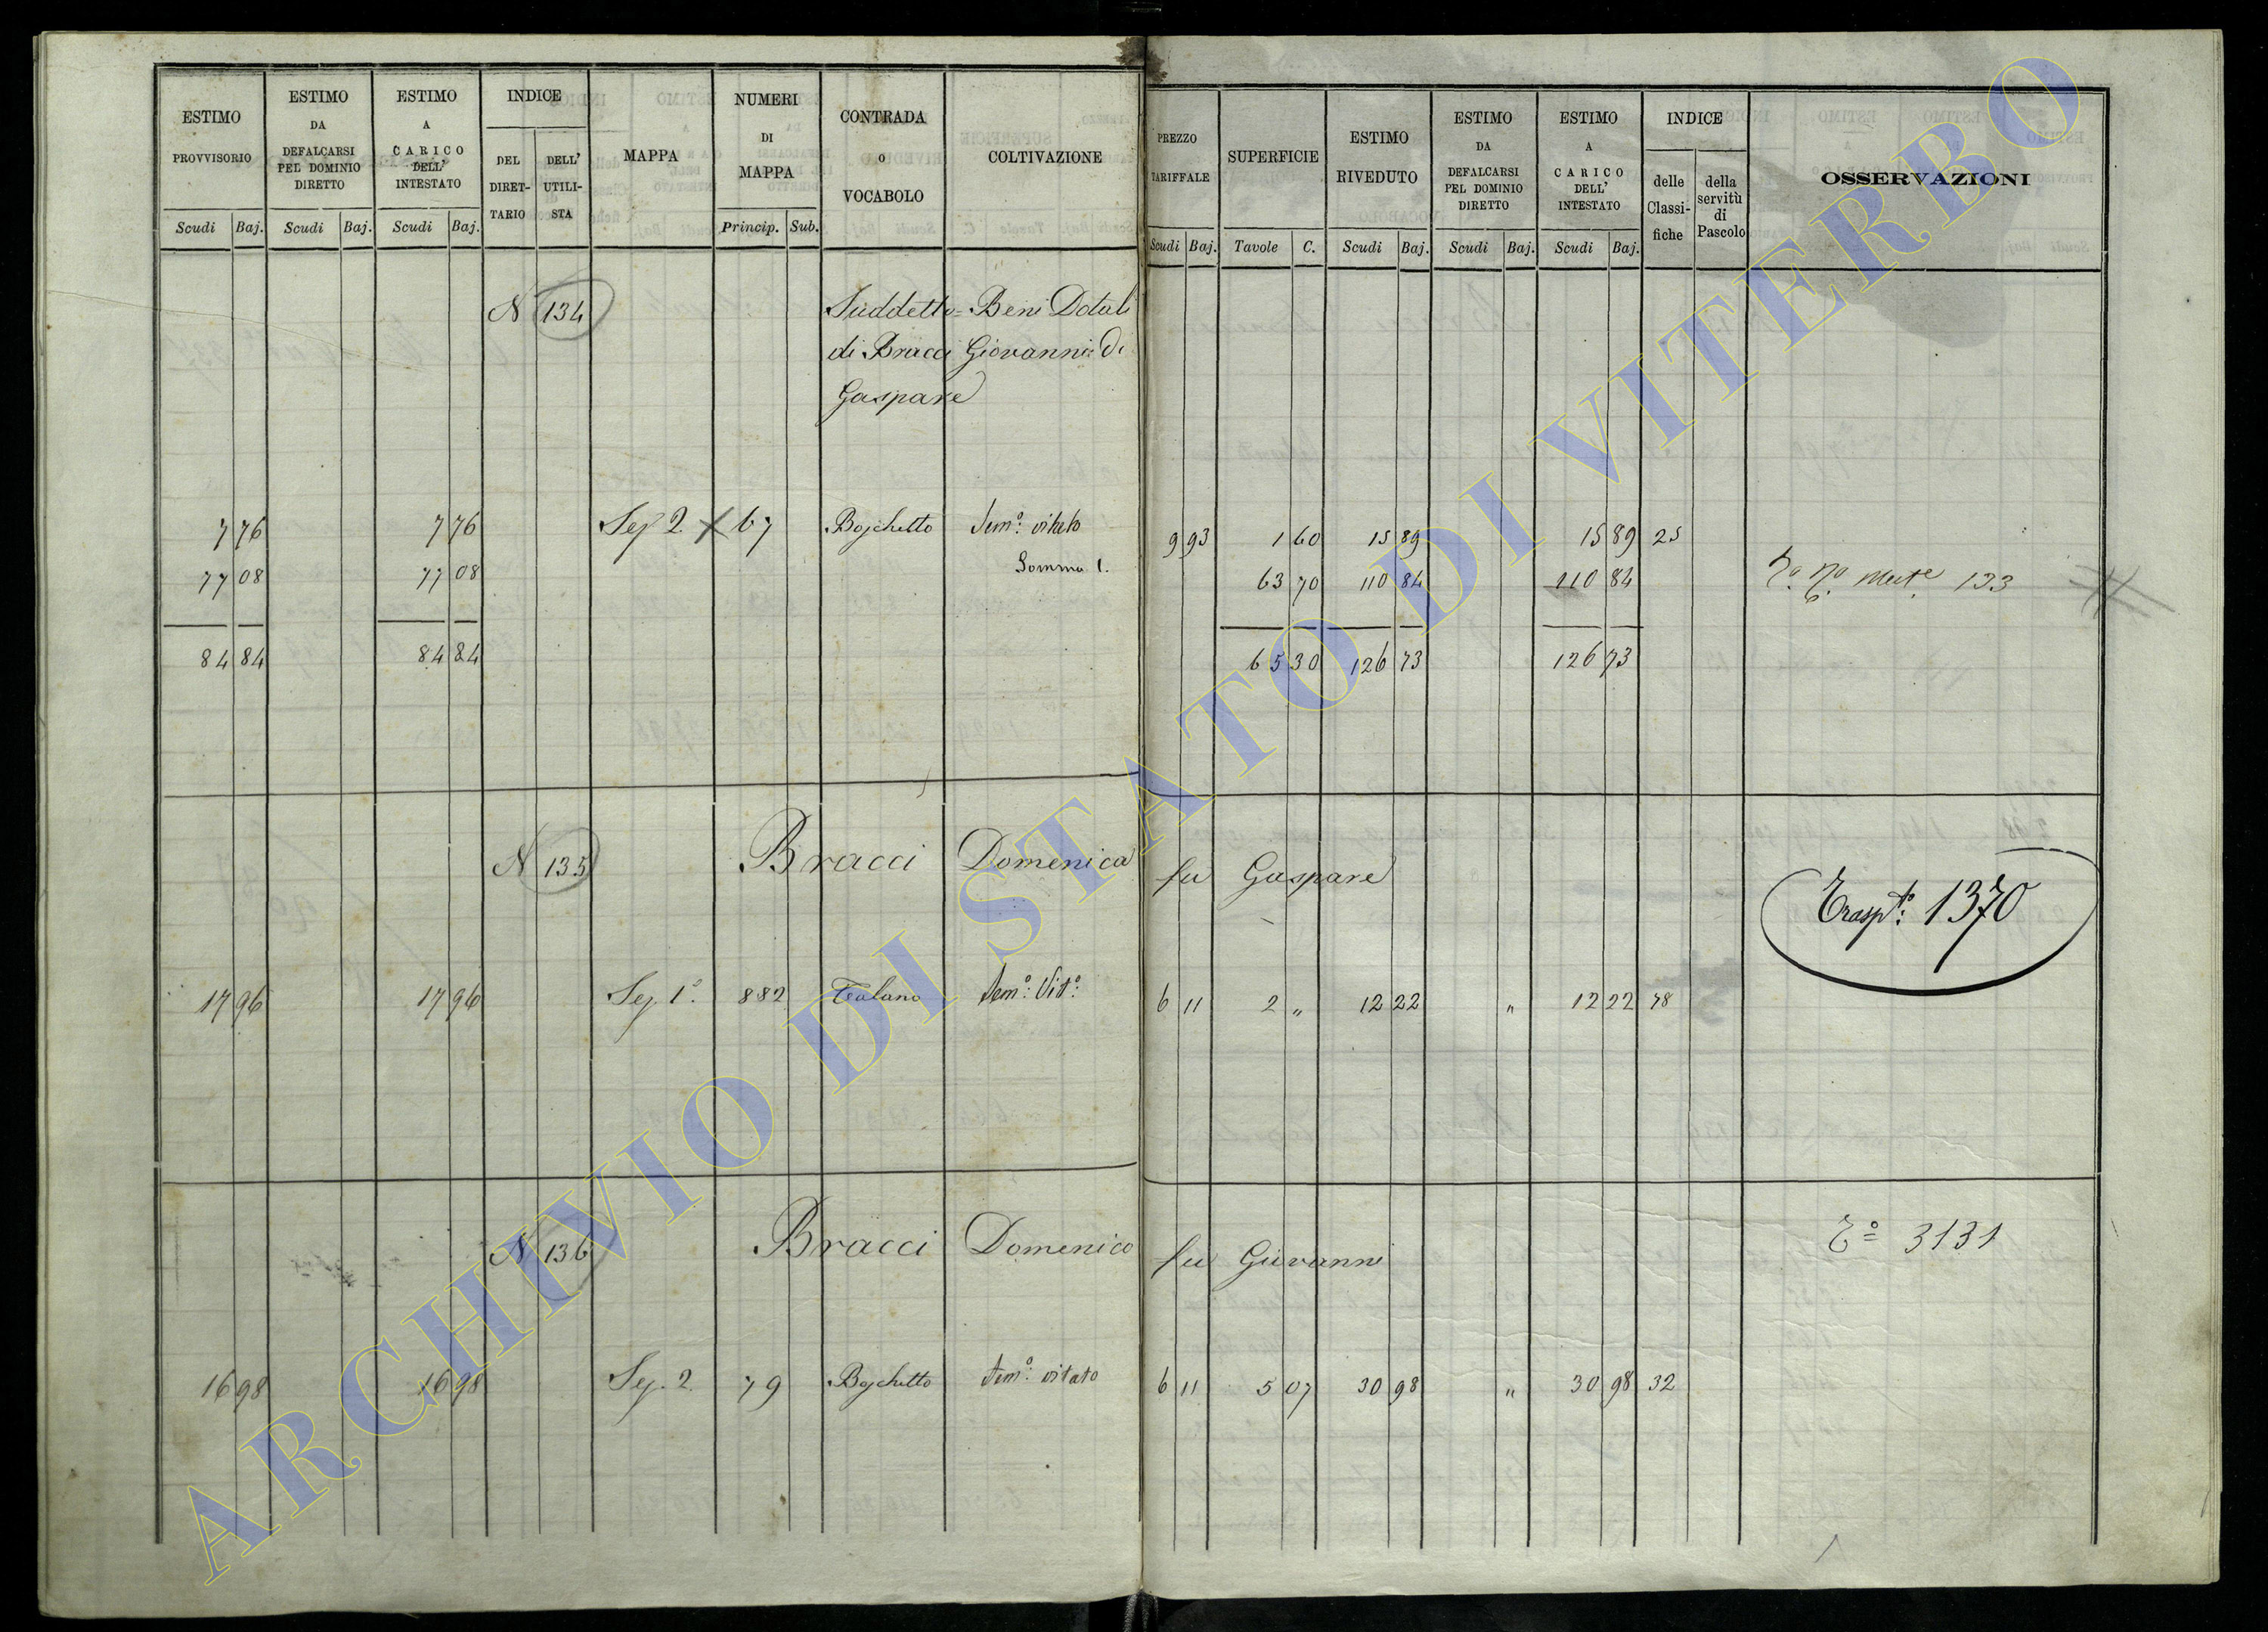 ESTIMO PROVVISORIO
Scudi Baj.
ESTIMO DA DEFALCARSI PEL DOMINIO DIRETTO
Scudi Baj.
ESTIMO A CARICO DELL' INTESTATO
Scudi Baj.
INDICE
DEL DIRET- TARIO
DELL' UTILI- STA
MAPPA
NUMERI DI MAPPA
Princip. Sub.
CONTRADA o VOCABOLO
COLTIVAZIONE
PREZZO TARIFFALE
Scudi Baj.
SUPERFICIE
Tavole C.
ESTIMO RIVEDUTO
Scudi Baj.
ESTIMO DA DEFALCARSI PEL DOMINIO DIRETTO
Scudi Baj.
ESTIMO A CARICO DELL' INTESTATO
Scudi Baj.
INDICE
delle Classi- fiche
della servitù di Pascolo
OSSERVAZIONI
N 134 Suddetto = Beni Dotali
di Bracci Giovanni di
Gaspare
7 76 7 76 Sez 2 67 Boschetto Sem.º vitato 9 93 1 60 15 89 15 89 25
77 08 77 08 Somma 1. 63 70 110 84 110 84 133
84 84 84 84 65 30 126 73 126 73
N 135 Bracci Domenica fu Gaspare
Trasp.to: 1370
17 96 17 96 Sez. 1º. 882 Sem.º: Vit.º: 6 11 2 " 12 22 " 12 22 78
N 136 Bracci Domenico fu Giovanni Tº 3131
16 98 16 98 Sez. 2 79 Boschetto Sem.º: vitato 6 11 5 07 30 98 " 30 98 32
ARCHIVIO DI STATO DI VITERBO